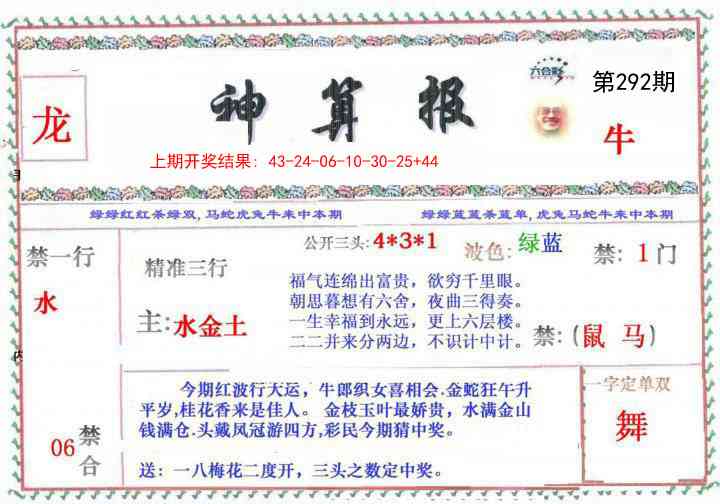 六合彩
第292期
龙
神算报
牛
上期开奖结果: 43-24-06-10-30-25+44
绿绿红红杀绿双,马蛇虎兔牛来中本期
绿绿蓝蓝杀蓝单,虎兔马蛇牛来中本期
禁一行
水
精准三行
主:水金土
公开三头:4*3*1
波色:绿蓝
禁:1门
福气连绵出富贵，欲穷千里眼。
朝思暮想有六舍，夜曲三得奏。
一生幸福到永远，更上六层楼。
二二并来分两边，不识计中计。
禁:(鼠 马)
06
禁合
今期红波行大运，牛郎织女喜相会.金蛇狂午升
平岁,桂花香来是佳人。金枝玉叶最娇贵，水满金山
钱满仓.头戴凤冠游四方,彩民今期猜中奖。
送：一八梅花二度开，三头之数定中奖。
一字定单双
舞